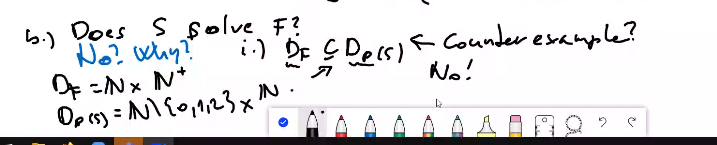 b.) Does S solve F?
No? Why? i.) D_F ⊆ D_p(s) ← Counter example?
No!
D_F = ℕ × ℕ⁺
D_p(s) = ℕ \ {0,1,2} × ℕ